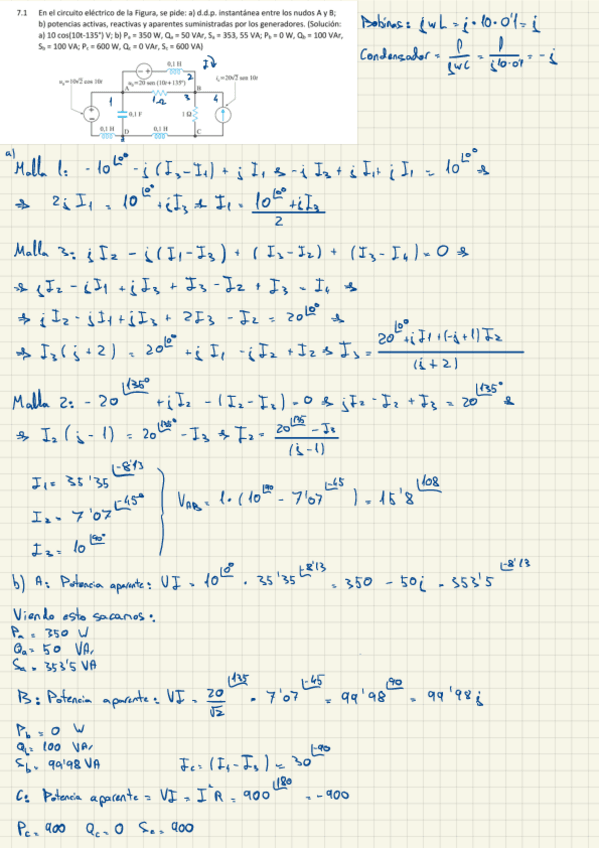 7.1 En el circuito eléctrico de la Figura, se pide: a) d.d.p. instantánea entre los nudos A y B;
b) potencias activas, reactivas y aparentes suministradas por los generadores. (Solución:
a) 10 cos(10t-135°) V; b) Pₐ = 350 W, Qₐ = 50 VAr, Sₐ = 353, 55 VA; P_b = 0 W, Q_b = 100 VAr,
S_b = 100 VA; P_c = 600 W, Q_c = 0 VAr, S_c = 600 VA)
Bobinas: jwL = j·10·0'1 = j
Condensador = 1/jwC = 1/j10·0'1 = -j
0,1 H
2
A
B
1
1Ω
3
4
0,1 F
1 Ω
0,1 H
D
0,1 H
C
a)
Malla 1: -10∠0° -j(I₃-I₁) + j I₁ ⇒ -j I₃ + j I₁ + j I₁ = 10∠0° ⇒
⇒ 2j I₁ = 10∠0° + jI₃ ⇒ I₁ = 10∠0° + jI₃ / 2
Malla 3: jI₂ - j(I₁-I₃) + (I₃-I₂) + (I₃-I₄) = 0 ⇒
⇒ jI₂ - jI₁ + jI₃ + I₃ - I₂ + I₃ = I₄ ⇒
⇒ jI₂ - jI₁ + jI₃ + 2I₃ - I₂ = 20∠0° ⇒
⇒ I₃(j+2) = 20∠0° + j I₁ - jI₂ + I₂ ⇒ I₃ = 20∠0° + jI₁ + (-j+1)I₂ / (j+2)
Malla 2: -20∠135° + jI₂ - (I₂-I₃) = 0 ⇒ jI₂ - I₂ + I₃ = 20∠135° ⇒
⇒ I₂(j-1) = 20∠135° - I₃ ⇒ I₂ = 20∠135 - I₃ / (j-1)
I₁ = 35'35∠-8'13
I₂ = 7'07∠-45°
I₃ = 10∠90°
V_AB = 1·(10∠90 - 7'07∠-45) = 15'8∠108
b) A: Potencia aparente: VI = 10∠0° · 35'35∠-8'13 = 350 - 50j = 353'5∠-8'13
Viendo esto sacamos:
Pₐ = 350 W
Qₐ = 50 VAr
Sₐ = 353'5 VA
B: Potencia aparente: VI = 20/√2∠135 · 7'07∠-45 = 99'98∠90 = 99'98j
P_b = 0 W
Q_b = 100 VAr
S_b = 99'98 VA
I_c = (I₄-I₃) = 30∠-90
C: Potencia aparente = VI = I²R = 900∠180 = -900
P_c = 900 Q_c = 0 S_c = 900